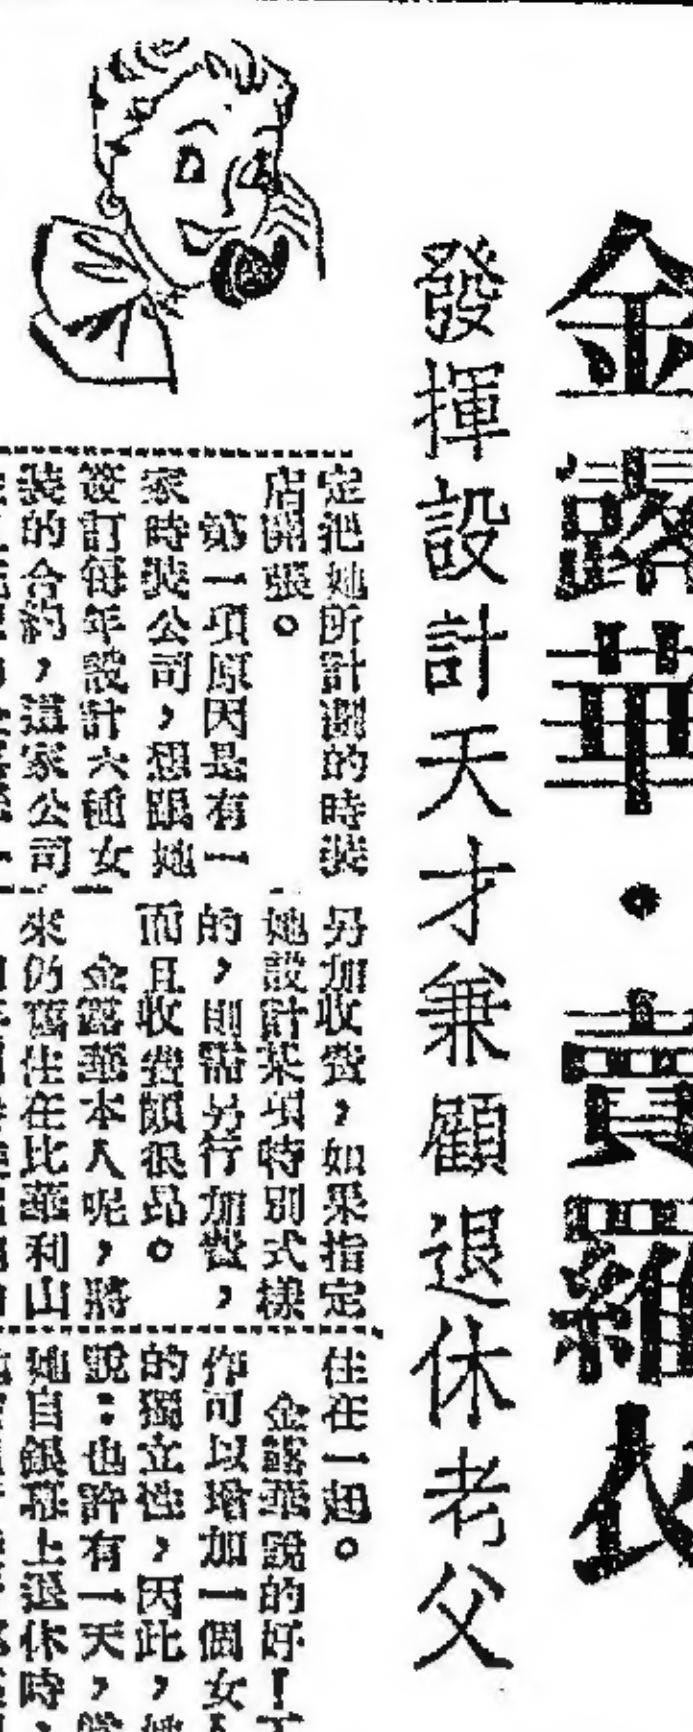 金露華·賣羅衣
發揮設計天才兼顧退休老父
定把她所計劃的時裝
店開張。
第一項原因是有一
家時裝公司，想跟她
簽訂每年設計六種女
裝的合約，這家公司
另加收費，如果指定
她設計某項特別式樣
的，則需另行加費，
而且收費頗很昂。
金露華本人呢，將
來仍舊住在比華利山
住在一起。
金露華說的好！工
作可以增加一個女人
的獨立性，因此，她
說：也許有一天，當
她自銀幕上退休時，